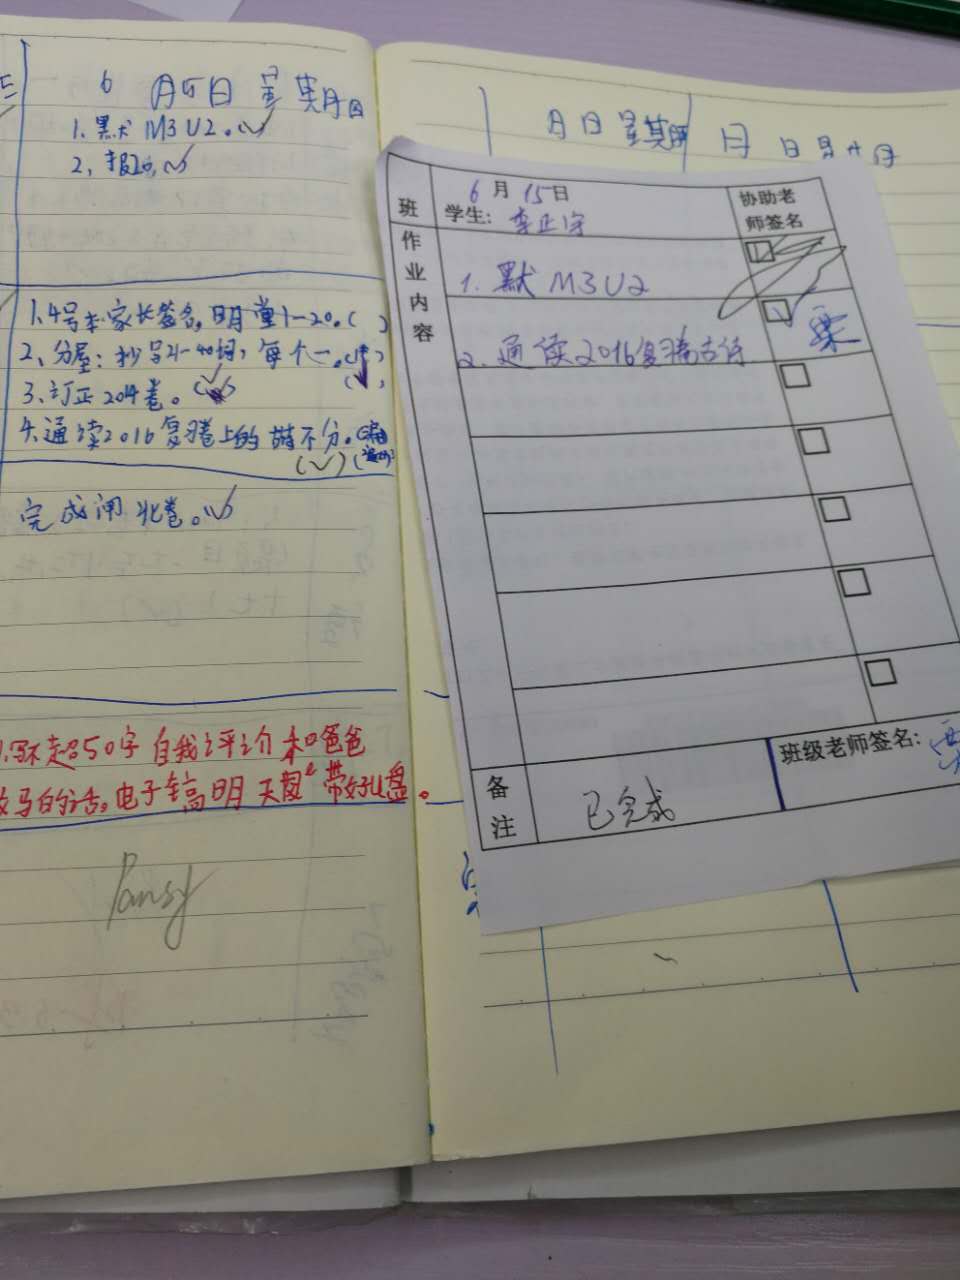 6月15日 星期日
1.默 M3U2。
2.报
1.4号本家长签名,明堂1-20.( )
2、分层:抄写21-40词,每个一。( )
3、订正2014卷。( )
4.通读2016复习卷上的 不分.
完成闸北卷。
1.写不超50字自我评介和爸爸
妈的话。电子稿明天 带好U盘。
Pansy
月 日 星期 月 日 星期
班
6月15日
学生: 李正宇
协助老
师签名
作
业
内
容
1. 默 M3U2
2. 通读2016复习卷古诗
栗
备
注
已完成
班级老师签名:
栗